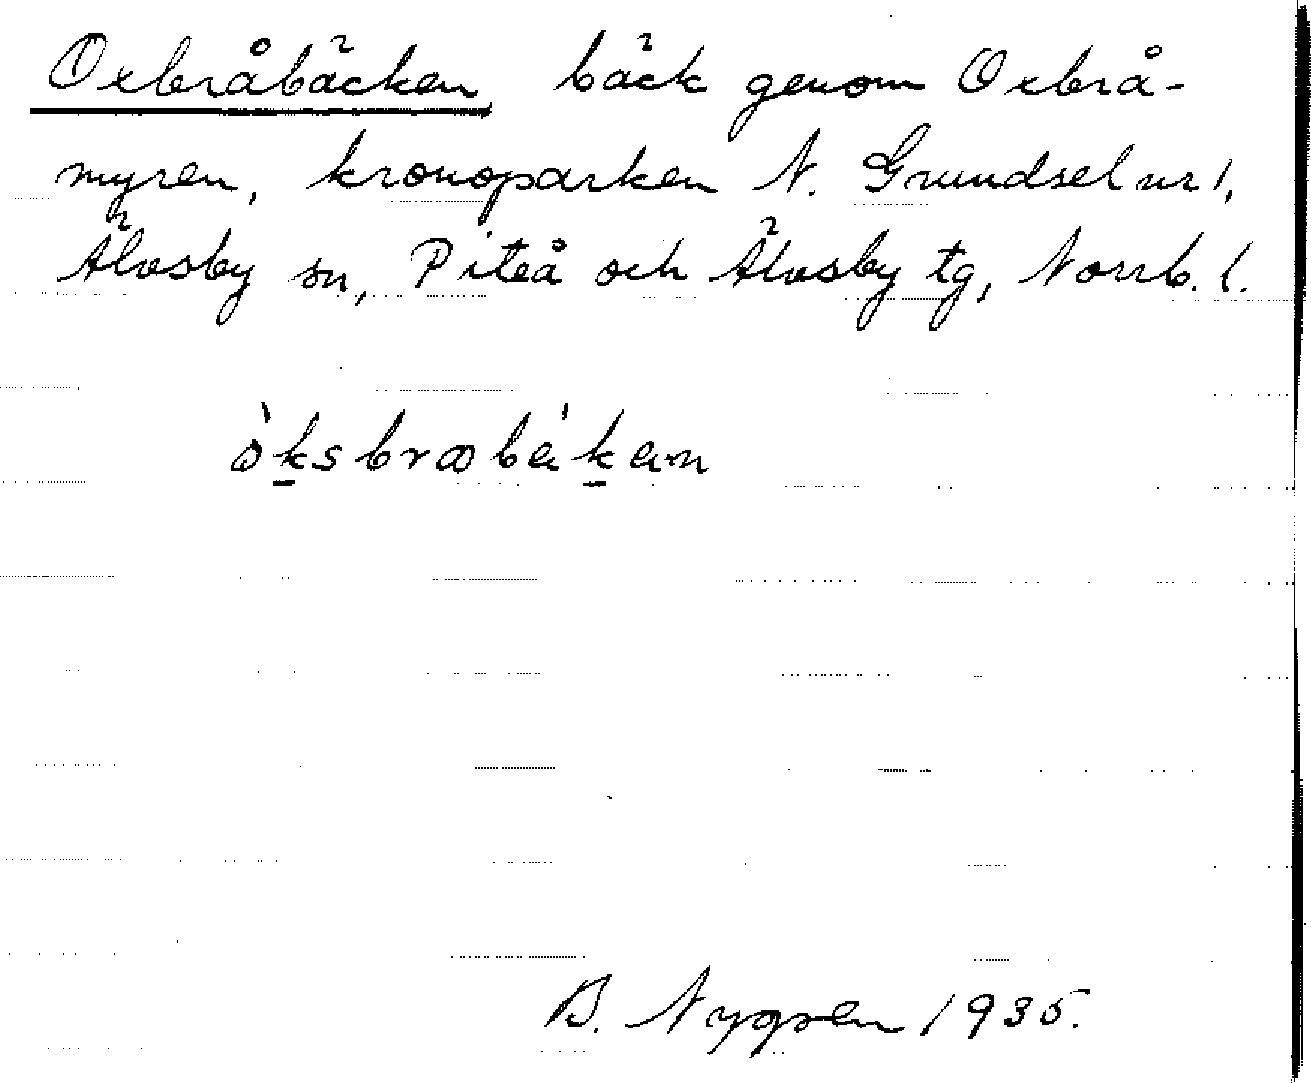 Oxbråbäcken bäck genom Oxbrå-
myren, kronoparken N. Grundsel nr 1,
Älvsby sn, Piteå och Älvsby tg, Norrb. l.
B. Nygren 1935.